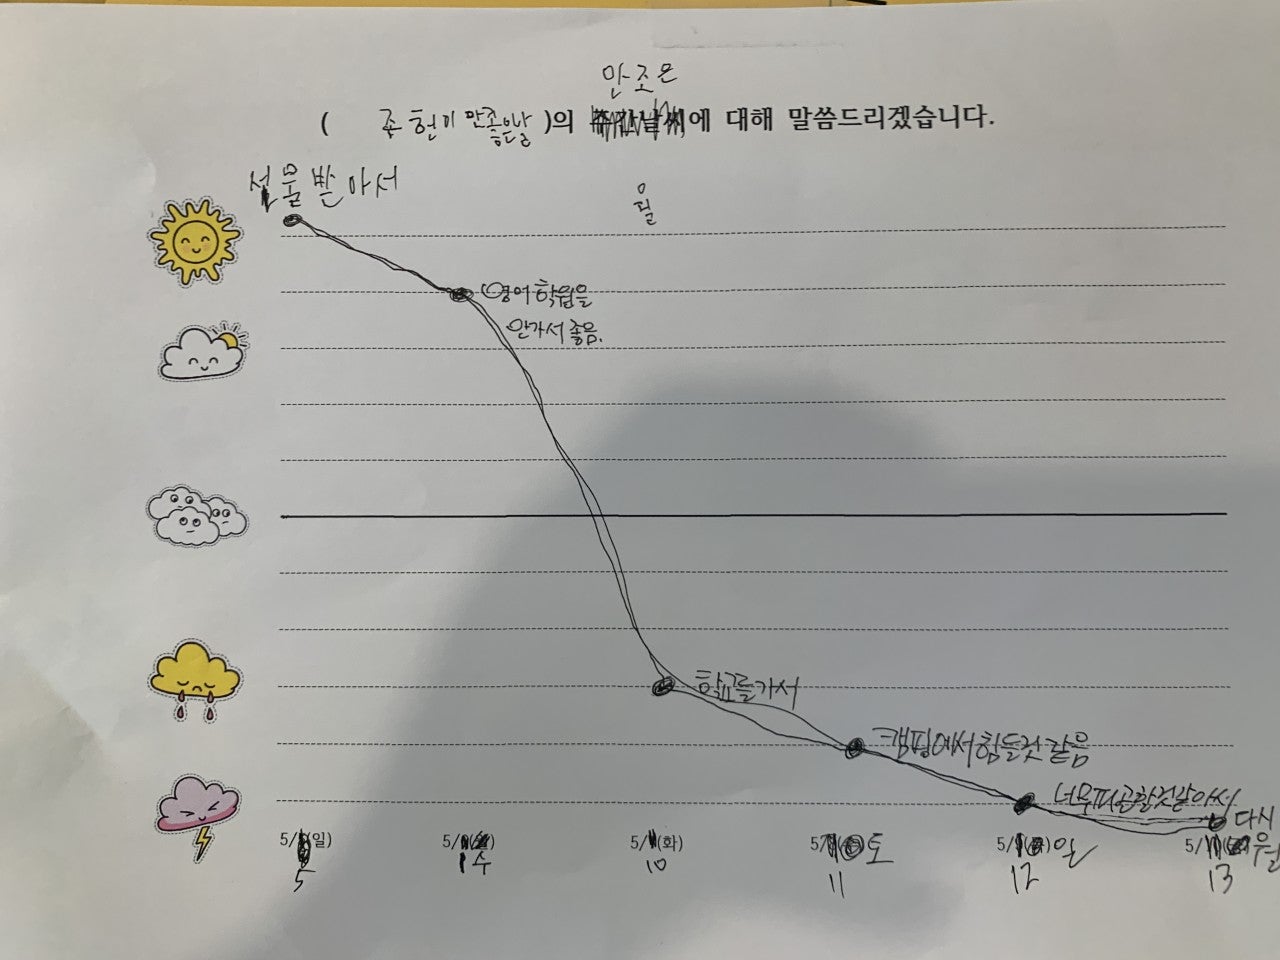 만조은
( 존헌이 만족한날 )의 주간날씨에 대해 말씀드리겠습니다.
선물받아서
일
영어학원을
안가서좋음.
학교를가서
캠핑에서힘들것같음
너무피곤할것같아서
다시
5/ (일) 5/ 5/ (화) 5/ 토 5/ 일 5/ 월
5 1 수 10 11 12 13